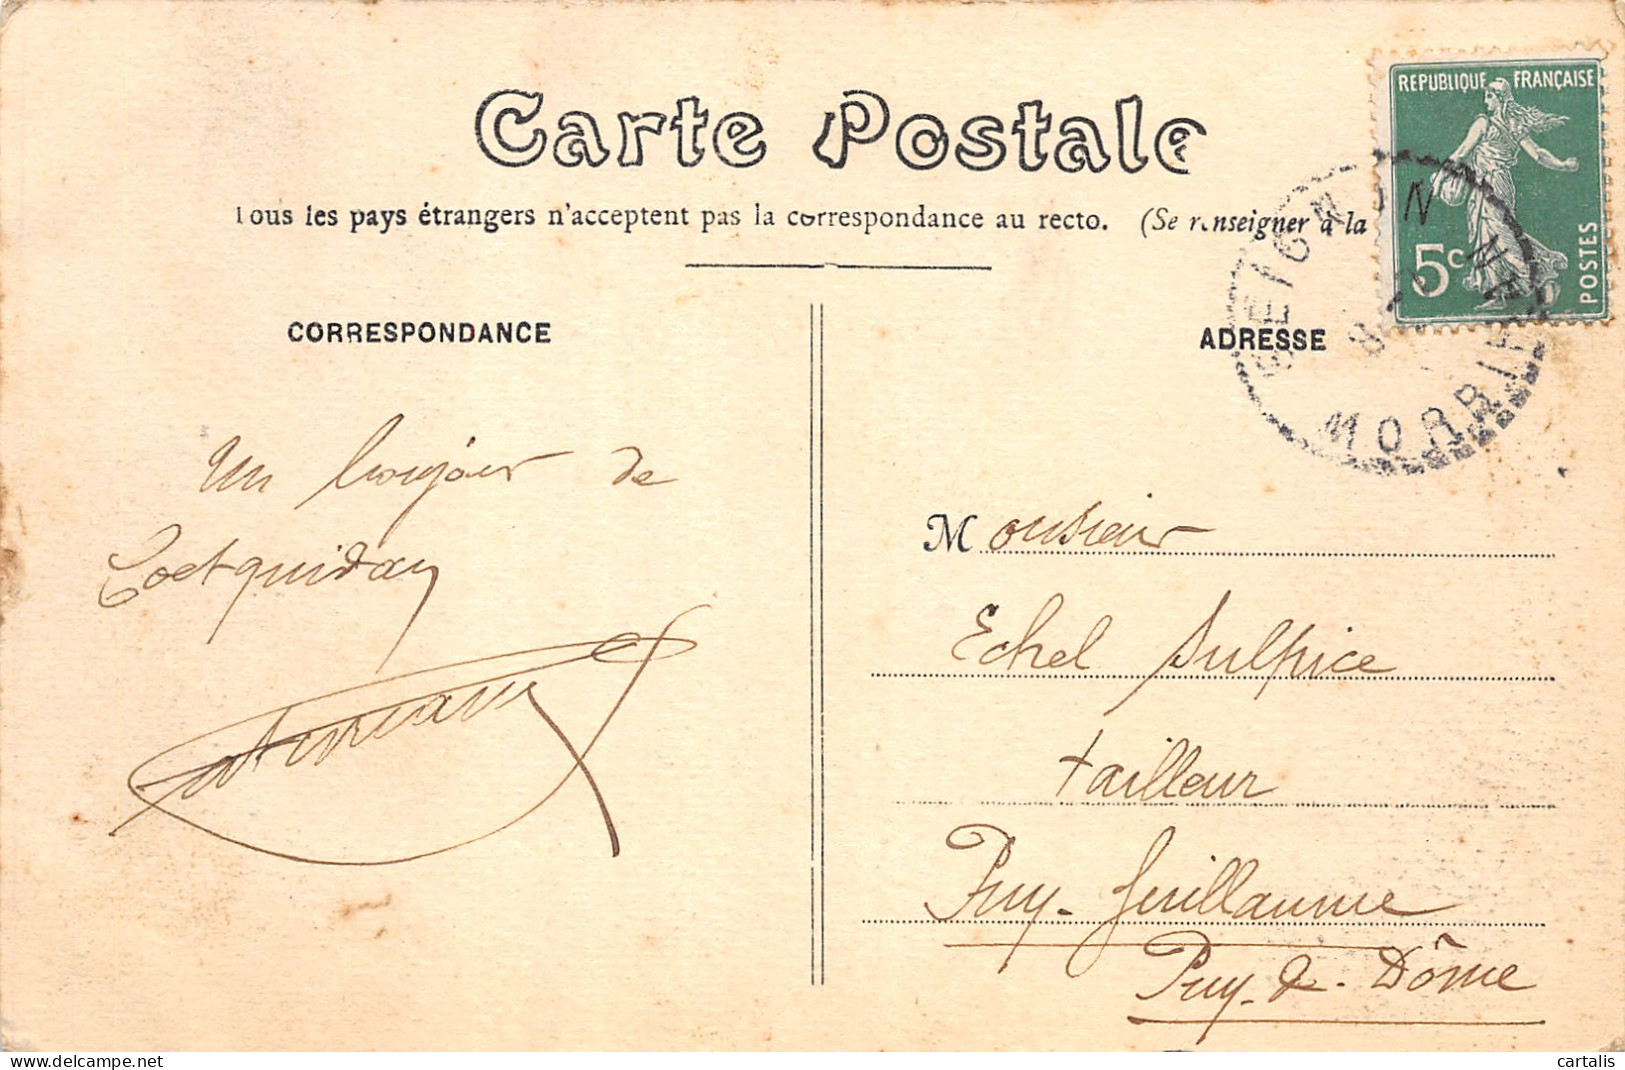 Carte Postale
Tous les pays étrangers n'acceptent pas la correspondance au recto. (Se renseigner à la
REPUBLIQUE FRANÇAISE
5c
POSTES
MORBIHAN
CORRESPONDANCE
ADRESSE
Un bonjour de
Coetquidan
Monsieur
Echel Sulpice
tailleur
Puy-Guillaume
Puy-de-Dôme
cartalis